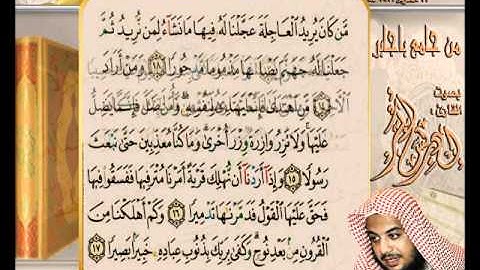 من جامع باجابر
بصوت
القارئ :
مَّن كَانَ يُرِيدُ الْعَاجِلَةَ عَجَّلْنَا لَهُ فِيهَا مَا نَشَاءُ لِمَن نُّرِيدُ ثُمَّ
جَعَلْنَا لَهُ جَهَنَّمَ يَصْلَاهَا مَذْمُومًا مَّدْحُورًا ١٨ وَمَنْ أَرَادَ
مَّنِ اهْتَدَىٰ فَإِنَّمَا يَهْتَدِي لِنَفْسِهِ وَمَن ضَلَّ فَإِنَّمَا يَضِلُّ
عَلَيْهَا وَلَا تَزِرُ وَازِرَةٌ وِزْرَ أُخْرَىٰ وَمَا كُنَّا مُعَذِّبِينَ حَتَّىٰ نَبْعَثَ
رَسُولًا ١٥ وَإِذَا أَرَدْنَا أَن نُّهْلِكَ قَرْيَةً أَمَرْنَا مُتْرَفِيهَا فَفَسَقُوا فِيهَا
فَحَقَّ عَلَيْهَا الْقَوْلُ فَدَمَّرْنَاهَا تَدْمِيرًا ١٦ وَكَمْ أَهْلَكْنَا مِنَ
الْقُرُونِ مِن بَعْدِ نُوحٍ وَكَفَىٰ بِرَبِّكَ بِذُنُوبِ عِبَادِهِ خَبِيرًا بَصِيرًا ١٧